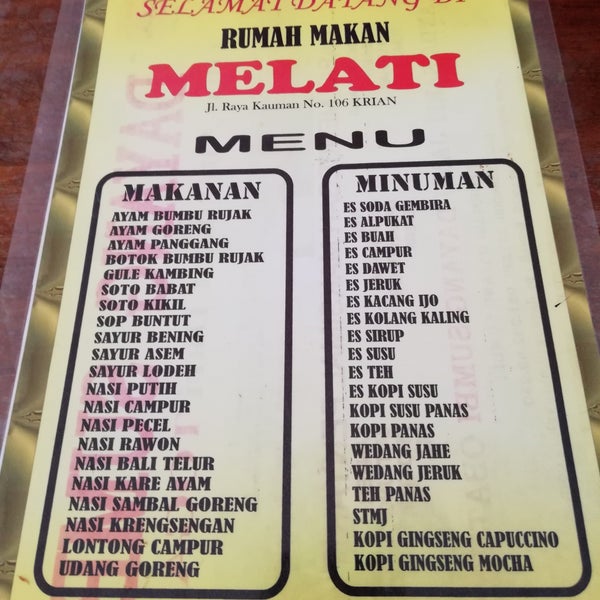 SELAMAT DATANG DI
RUMAH MAKAN
MELATI
Jl. Raya Kauman No. 106 KRIAN
MENU
MAKANAN
AYAM BUMBU RUJAK
AYAM GORENG
AYAM PANGGANG
BOTOK BUMBU RUJAK
GULE KAMBING
SOTO BABAT
SOTO KIKIL
SOP BUNTUT
SAYUR BENING
SAYUR ASEM
SAYUR LODEH
NASI PUTIH
NASI CAMPUR
NASI PECEL
NASI RAWON
NASI BALI TELUR
NASI KARE AYAM
NASI SAMBAL GORENG
NASI KRENGSENGAN
LONTONG CAMPUR
UDANG GORENG
MINUMAN
ES SODA GEMBIRA
ES ALPUKAT
ES BUAH
ES CAMPUR
ES DAWET
ES JERUK
ES KACANG IJO
ES KOLANG KALING
ES SIRUP
ES SUSU
ES TEH
ES KOPI SUSU
KOPI SUSU PANAS
KOPI PANAS
WEDANG JAHE
WEDANG JERUK
TEH PANAS
STMJ
KOPI GINGSENG CAPUCCINO
KOPI GINGSENG MOCHA